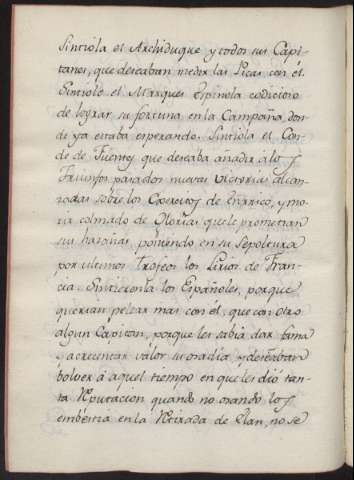 Sintiola el Archiduque y todos sus Capi-
tanes, que deseaban medir las Picas con él.
Sintiole el Marques Espinola codicioso
de lograr su fortuna en la Campaña, don-
de ya estaba esperando. Sintiola el Con-
de de Fuentes que deseaba añadir á los
Triunfos pasados nuevas victorias alcan-
zadas sobre los Exercitos de Enrrico, y mo-
ria colmado de Glorias que le prometian
sus hazañas, poniendo en su Sepoltura
por ultimos Trofeos los Lirios de Fran-
cia. Sintieronla los Españoles, porque
querian pelear mas con él, que con otro
algun Capitan, porque les sabia dar fama
y acrecentar valor su osadia, y deseaban
bolver á aquel tiempo en que les dió tan-
ta Reputacion quando no osando los
embestir en la Retirada de Lan, no se